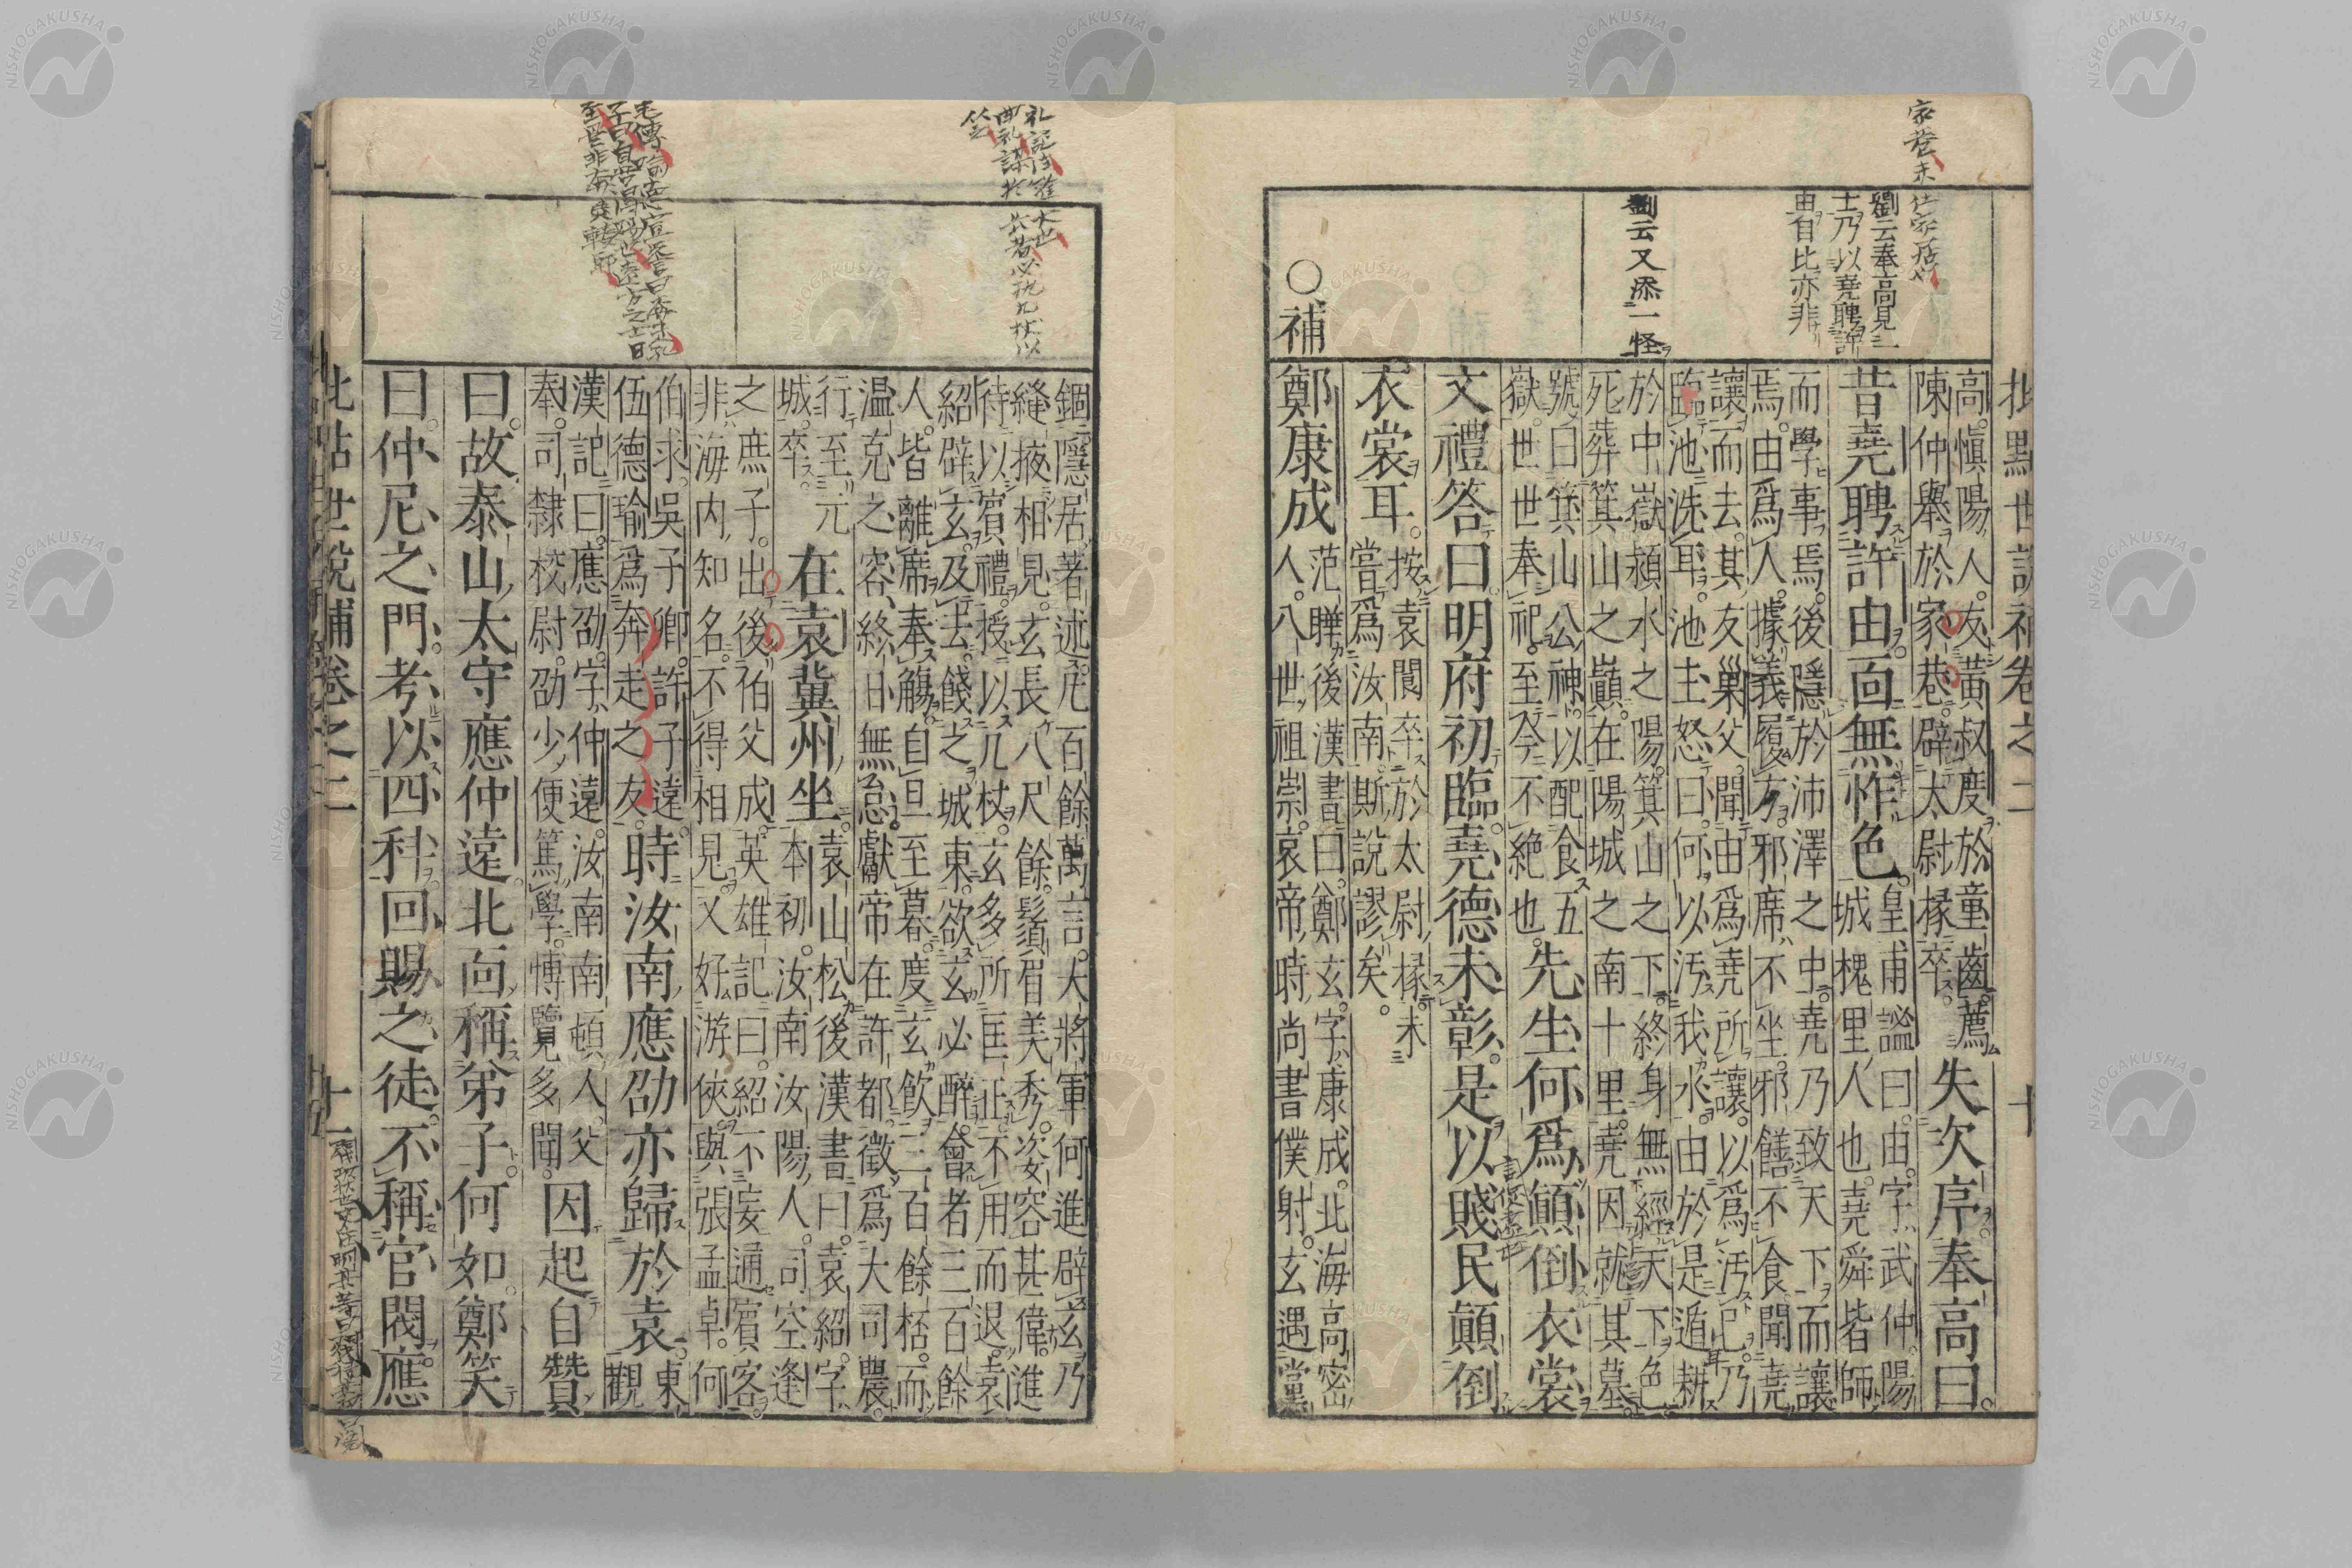 家巷未仕家居也
劉云奉高見
士乃以堯聘許
由自比亦非
劉云又添一怪
○補
高愼陽人友黃叔度於童齒薦
陳仲舉於家巷辟太尉掾卒
失次序奉高曰
昔堯聘許由面無怍色
皇甫謐曰由字武仲陽
城槐里人也堯舜皆師
而學事焉後隱於沛澤之中堯乃致天下而讓
焉由爲人據義履方邪席不坐邪饍不食聞堯
讓而去其友巢父聞由爲堯所讓以爲汚己乃
臨池洗耳池主怒曰何以汚我水由於是遁耕
於中嶽潁水之陽箕山之下終身無經天下色
死葬箕山之巓在陽城之南十里堯因就其墓
號曰箕山公神以配食五
嶽世世奉祀至今不絶也
先生何爲顚倒衣裳
文禮答曰明府初臨堯德未彰是以賤民顚倒
衣裳耳
按袁閬卒於太尉掾未
嘗爲汝南斯說謬矣
鄭康成
范曄後漢書曰鄭玄字康成北海高密
人八世祖崇哀帝時尚書僕射玄遇黨
錮隱居著述凢百餘萬言大將軍何進辟玄乃
縫掖相見玄長八尺餘鬚眉美秀姿容甚偉進
待以賓禮授以几杖玄多所匡正不用而退袁
紹辟玄及去餞之城東欲玄必醉會者三百餘
人皆離席奉觴自旦至暮度玄飲三百餘桮而
温克之容終日無怠獻帝在許都徵爲大司農
行至元
城卒
在袁冀州坐
袁山松後漢書曰袁紹字
本初汝南汝陽人司空逢
之庶子出後伯父成英雄記曰紹不妄通賓客
非海内知名不得相見又好游俠與張孟卓何
伯求吳子卿許子遠
伍德瑜爲奔走之友
時汝南應劭亦歸於袁
東
觀
漢記曰應劭字仲遠汝南南頓人父
奉司隸校尉劭少便篤學博覽多聞
因起自贊
曰故泰山太守應仲遠北面稱弟子何如鄭笑
曰仲尼之門考以四科回賜之徒不稱官閥應
世說補卷之二 十一
NISHOGAKUSHA